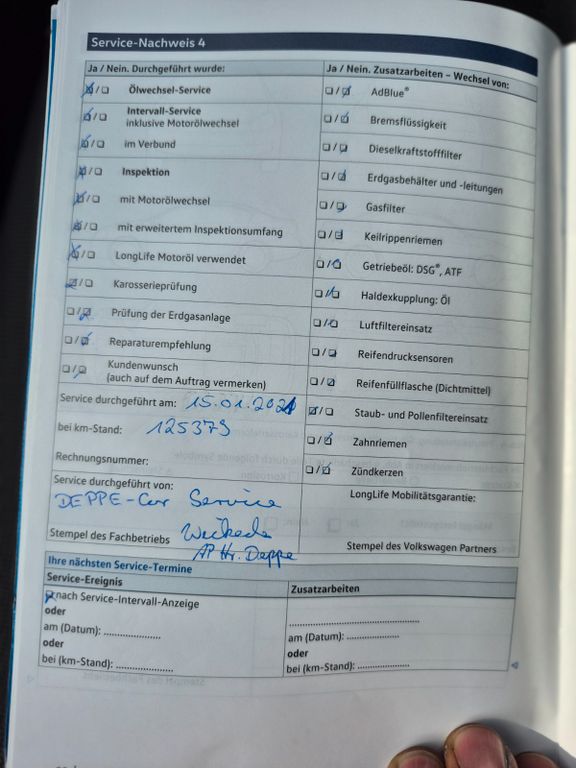 Service-Nachweis 4
Ja / Nein. Durchgeführt wurde:
Ölwechsel-Service
Intervall-Service
inklusive Motorölwechsel
im Verbund
Inspektion
mit Motorölwechsel
mit erweitertem Inspektionsumfang
LongLife Motoröl verwendet
Karosserieprüfung
Prüfung der Erdgasanlage
Reparaturempfehlung
Kundenwunsch
(auch auf dem Auftrag vermerken)
Service durchgeführt am: 15.01.2021
bei km-Stand: 125379
Rechnungsnummer:
Service durchgeführt von:
DEPPE-Car Service
Stempel des Fachbetriebs
AP Hr. Deppe
Ja / Nein. Zusatzarbeiten – Wechsel von:
AdBlue®
Bremsflüssigkeit
Dieselkraftstofffilter
Erdgasbehälter und -leitungen
Gasfilter
Keilrippenriemen
Getriebeöl: DSG®, ATF
Haldexkupplung: Öl
Luftfiltereinsatz
Reifendrucksensoren
Reifenfüllflasche (Dichtmittel)
Staub- und Pollenfiltereinsatz
Zahnriemen
Zündkerzen
LongLife Mobilitätsgarantie:
Stempel des Volkswagen Partners
Ihre nächsten Service-Termine
Service-Ereignis
nach Service-Intervall-Anzeige
oder
am (Datum): ....................
oder
bei (km-Stand): ....................
Zusatzarbeiten
..............................................
am (Datum): ..................
oder
bei (km-Stand): ..................